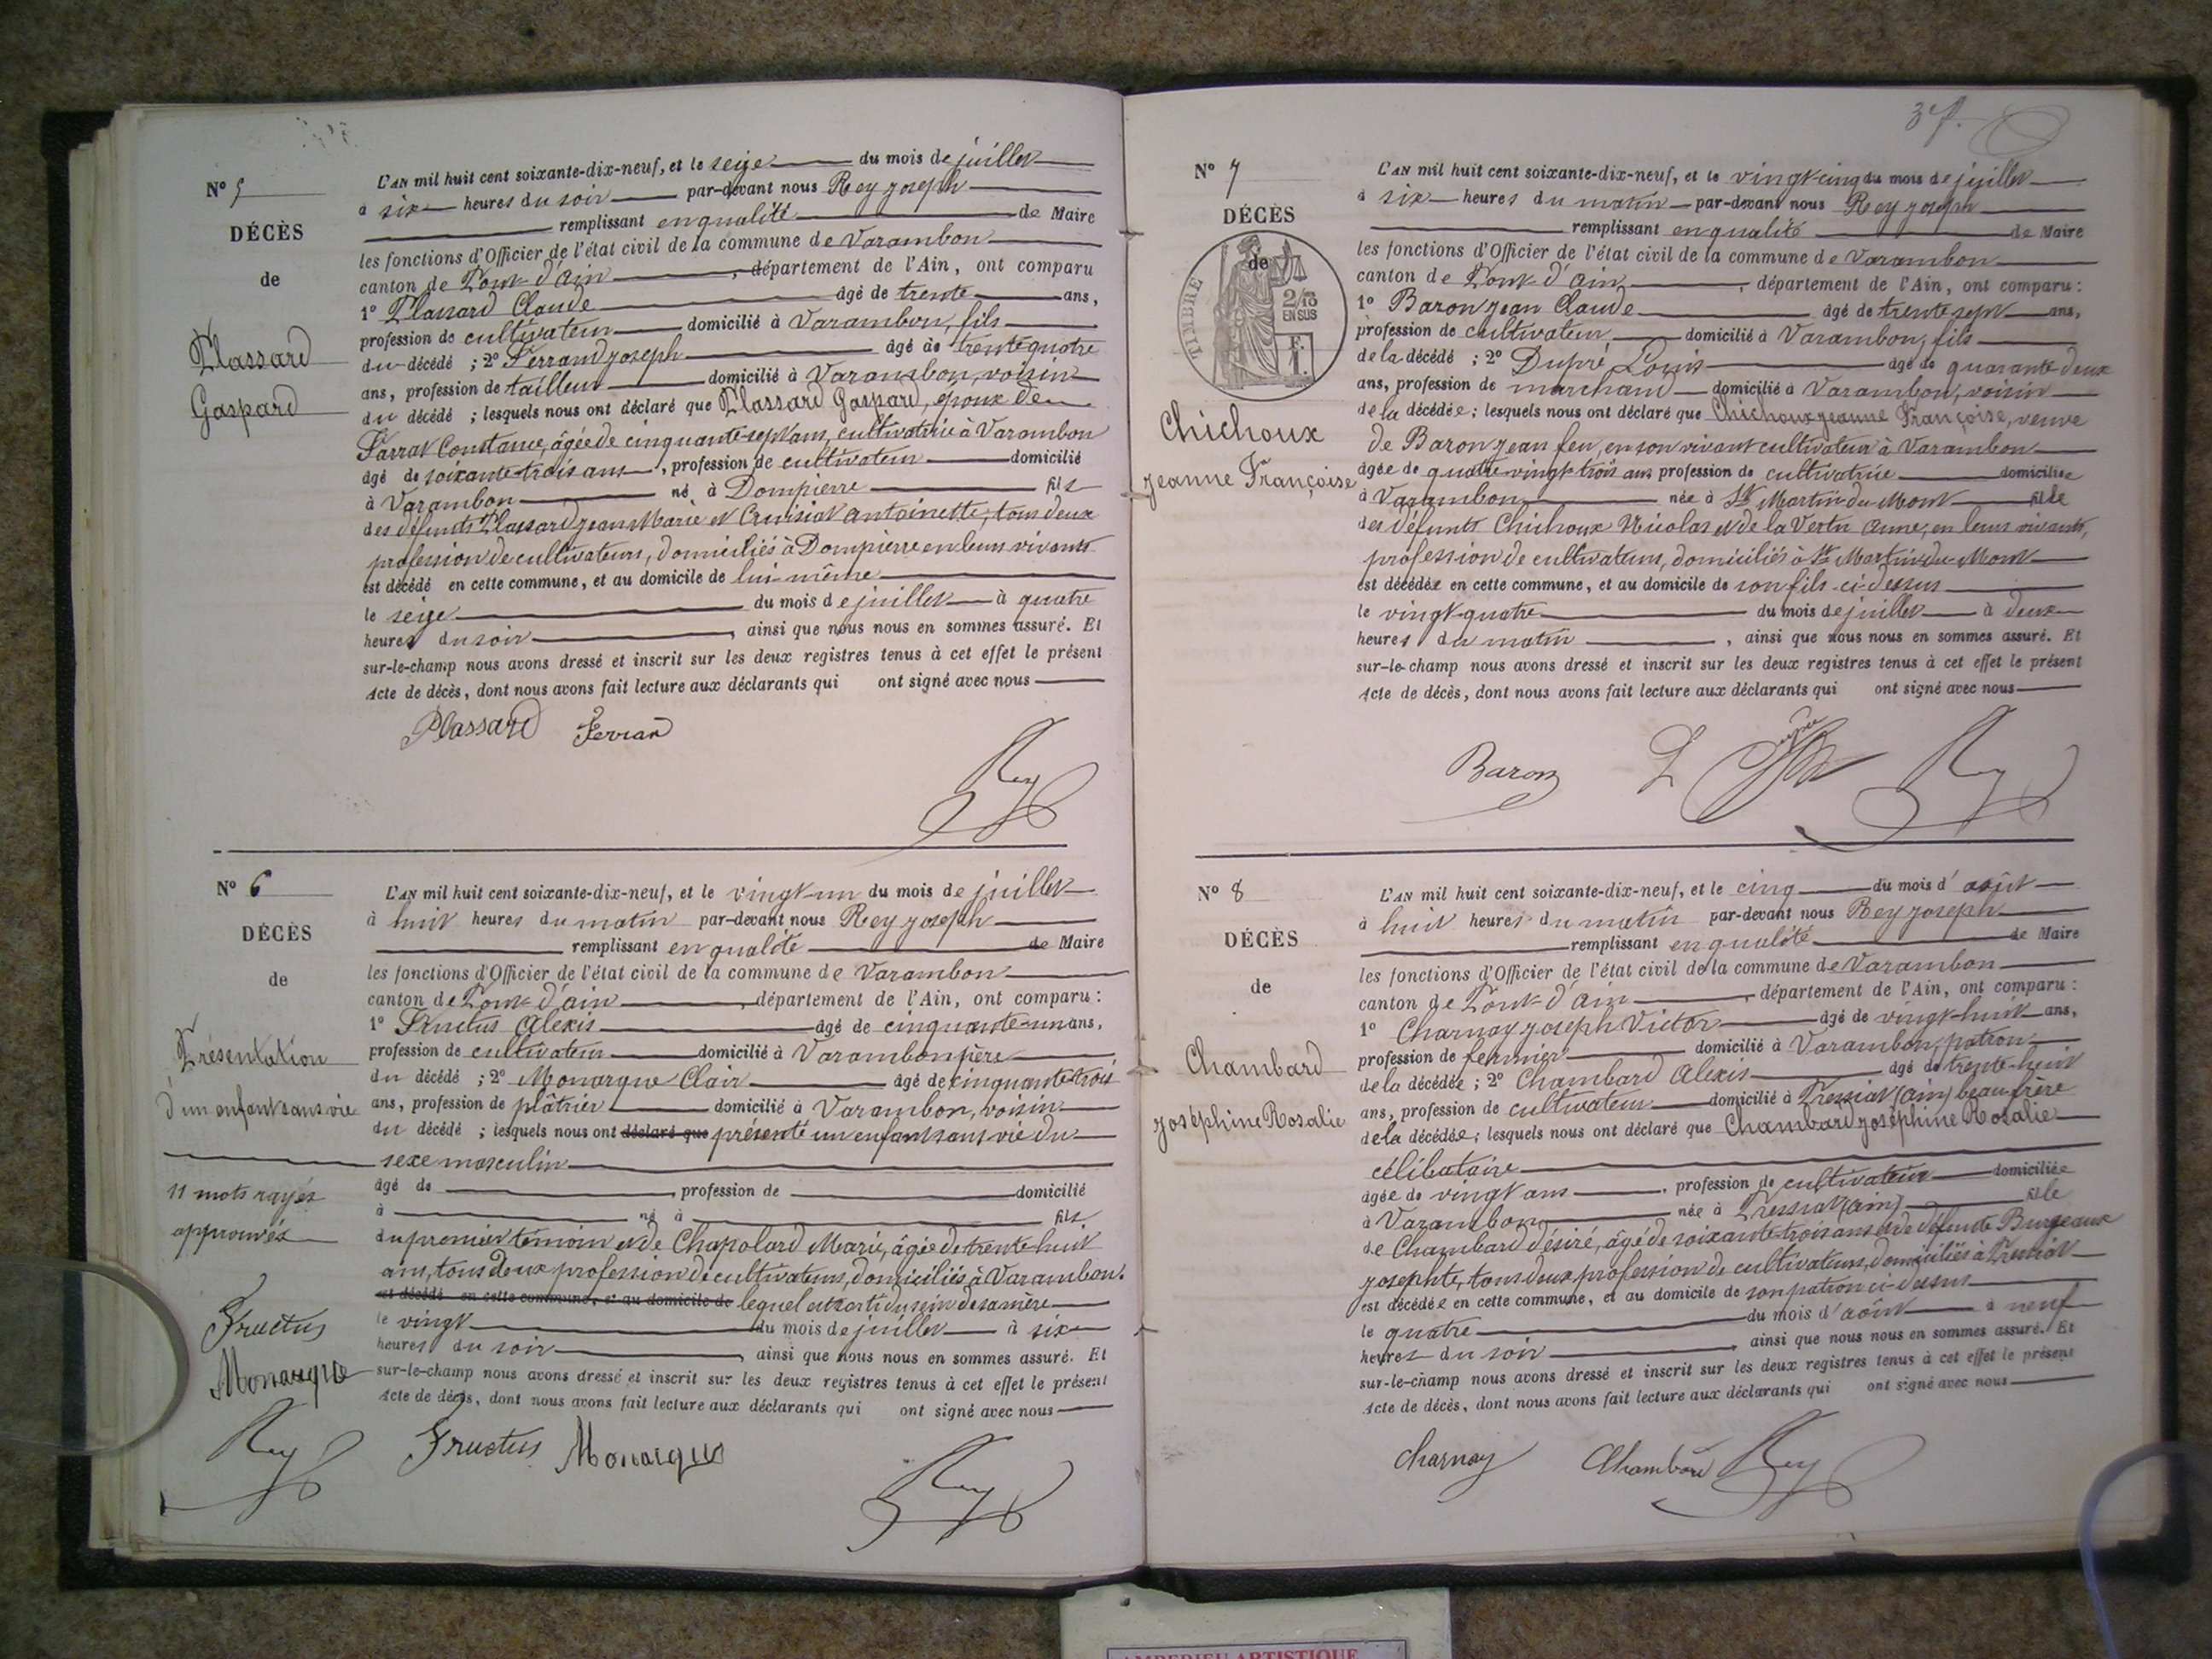 N° 5
DÉCÈS
de
Plassard
Gaspard
L'AN mil huit cent soixante-dix-neuf, et le seize du mois de juillet
à six heures du soir par-devant nous Rey Joseph
remplissant en qualité de Maire
les fonctions d'Officier de l'état civil de la commune de Varambon
canton de Pont-d'Ain, département de l'Ain, ont comparu
1° Plassard Claude âgé de trente ans,
profession de cultivateur domicilié à Varambon, fils
du décédé ; 2° Ferrand Joseph âgé de trente quatre
ans, profession de tailleur domicilié à Varambon, voisin
du décédé ; lesquels nous ont déclaré que Plassard Gaspard, époux de
Farrat Constance, âgée de cinquante-sept ans, cultivatrice à Varambon
âgé de soixante-trois ans, profession de cultivateur domicilié
à Varambon né à Dompierre fils
des défunts Plassard Jean Marie et Cruisiat Antoinette, tous deux
profession de cultivateurs, domiciliés à Dompierre en leurs vivants
est décédé en cette commune, et au domicile de lui-même
le seize du mois de juillet à quatre
heures du soir, ainsi que nous nous en sommes assuré. Et
sur-le-champ nous avons dressé et inscrit sur les deux registres tenus à cet effet le présent
Acte de décès, dont nous avons fait lecture aux déclarants qui ont signé avec nous
Plassard Ferran
Rey
N° 6
DÉCÈS
de
Présentation
d'un enfant sans vie
11 mots rayés
approuvés
Fructus
Monarque
Rey
L'AN mil huit cent soixante-dix-neuf, et le vingt-un du mois de juillet
à huit heures du matin par-devant nous Rey Joseph
remplissant en qualité de Maire
les fonctions d'Officier de l'état civil de la commune de Varambon
canton de Pont-d'Ain, département de l'Ain, ont comparu :
1° Fructus Alexis âgé de cinquante-un ans,
profession de cultivateur domicilié à Varambon, père
du décédé ; 2° Monarque Clair âgé de cinquante-trois
ans, profession de plâtrier domicilié à Varambon, voisin
du décédé ; lesquels nous ont déclaré que présenté un enfant sans vie du
sexe masculin
âgé de , profession de domicilié
à né à fils
du premier témoin et de Chapolard Marie, âgée de trente-huit
ans, tous deux profession de cultivateurs, domiciliés à Varambon.
est décédé en cette commune, et au domicile de lequel est sorti du sein de sa mère
le vingt du mois de juillet à six
heures du soir, ainsi que nous nous en sommes assuré. Et
sur-le-champ nous avons dressé et inscrit sur les deux registres tenus à cet effet le présent
Acte de décès, dont nous avons fait lecture aux déclarants qui ont signé avec nous
Fructus Monarque
Rey
37.
N° 7
DÉCÈS
de
TIMBRE
2/10
EN SUS
F.
1.
Chichoux
Jeanne Françoise
L'AN mil huit cent soixante-dix-neuf, et le vingt-cinq du mois de juillet
à six heures du matin par-devant nous Rey Joseph
remplissant en qualité de Maire
les fonctions d'Officier de l'état civil de la commune de Varambon
canton de Pont-d'Ain, département de l'Ain, ont comparu :
1° Baron Jean Claude âgé de trente sept ans,
profession de cultivateur domicilié à Varambon, fils
de la décédé ; 2° Dupré Louis âgé de quarante deux
ans, profession de marchand domicilié à Varambon, voisin
de la décédée ; lesquels nous ont déclaré que Chichoux Jeanne Françoise, veuve
de Baron Jean feu, en son vivant cultivateur à Varambon
âgée de quatre-vingt-trois ans profession de cultivatrice domiciliée
à Varambon née à St Martin du Mont fille
des défunts Chichoux Nicolas et de la Vertu Anne, en leurs vivants,
profession de cultivateurs, domiciliés à St Martin-du-Mont
est décédée en cette commune, et au domicile de son fils ci-dessus
le vingt-quatre du mois de juillet à deux
heures du matin, ainsi que nous nous en sommes assuré. Et
sur-le-champ nous avons dressé et inscrit sur les deux registres tenus à cet effet le présent
Acte de décès, dont nous avons fait lecture aux déclarants qui ont signé avec nous
Baron L Dupré Rey
N° 8
DÉCÈS
de
Chambard
Joséphine Rosalie
L'AN mil huit cent soixante-dix-neuf, et le cinq du mois d'août
à huit heures du matin par-devant nous Rey Joseph
remplissant en qualité de Maire
les fonctions d'Officier de l'état civil de la commune de Varambon
canton de Pont-d'Ain, département de l'Ain, ont comparu :
1° Charnay Joseph Victor âgé de vingt-huit ans,
profession de fermier domicilié à Varambon, patron
de la décédée ; 2° Chambard Alexis âgé de trente-huit
ans, profession de cultivateur domicilié à Tressiat (Ain) beau frère
de la décédée ; lesquels nous ont déclaré que Chambard Joséphine Rosalie
célibataire
âgée de vingt ans, profession de cultivateur domiciliée
à Varambon née à Tressiat (Ain) fille
de Chambard Désiré, âgé de soixante-trois ans et de défunte Burgeaux
Josephte, tous deux profession de cultivateurs, domiciliés à Tressiat
est décédée en cette commune, et au domicile de son patron ci-dessus
le quatre du mois d'août à neuf
heures du soir, ainsi que nous nous en sommes assuré. Et
sur-le-champ nous avons dressé et inscrit sur les deux registres tenus à cet effet le présent
Acte de décès, dont nous avons fait lecture aux déclarants qui ont signé avec nous
Charnay Chambard Rey
AMBERIEU ARTISTIQUE